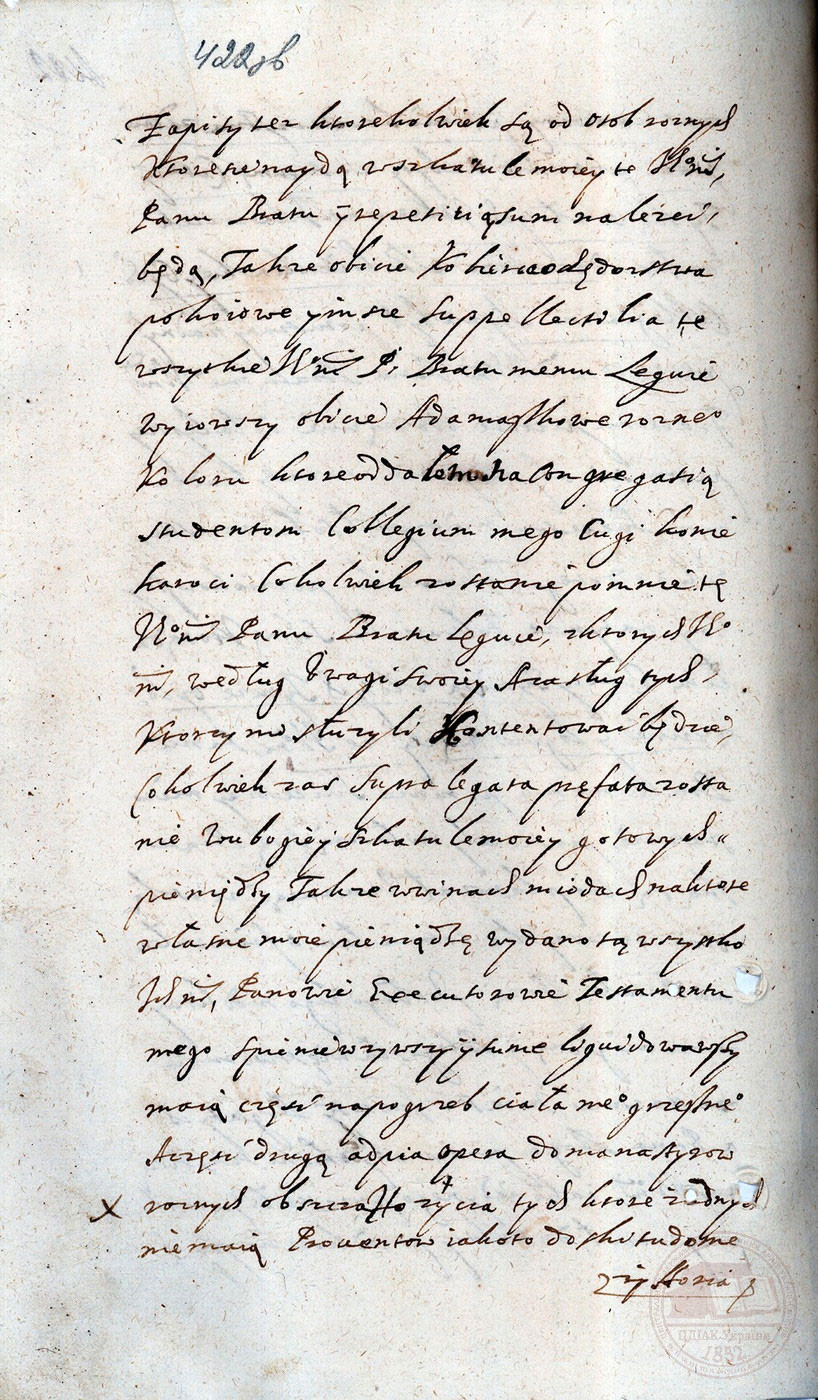 422 зв
Zapisy tez ktorekolwiek są od osob roznych
ktore sie naydą w szkatule moiey te
Panu Bratu y repetitią sum nalezeć
będą, Takze obicie Kobierce
pokoiowe y insze Suppellectilia te
wszytkie P. Bratu memu Leguię
wyiowszy obicie Adamaszkowe rozneo
Koloru ktore oddałem na Congregatią
studentom Collegium mego Cugi konie
karoci Cokolwiek zostanie po mnie tę
Panu Bratu leguię, z ktorych
według Uwagi swoiey A zasług tych
Ktorzy mi słuzyli Kontentować będzie,
Cokolwiek zas Supra legata pręfata zosta
nie W ubogiey szkatule moiey gotowych
pieniędzy Takze w winach miodach na ktore
własne moie pieniądze wydane są wszytko
Panowie Executorowie Testamentu
mego spieniezywszy y sume liquidowawszy
maią część na pogrzeb ciała meo grzeszneo
A częsć drugą ad pia opera do manastyrow
roznych obszczeho zycia tych ktore zadnych
nie maią Prowentow iako to do skitu dome
zyHoria
ЦДІАК України
1852